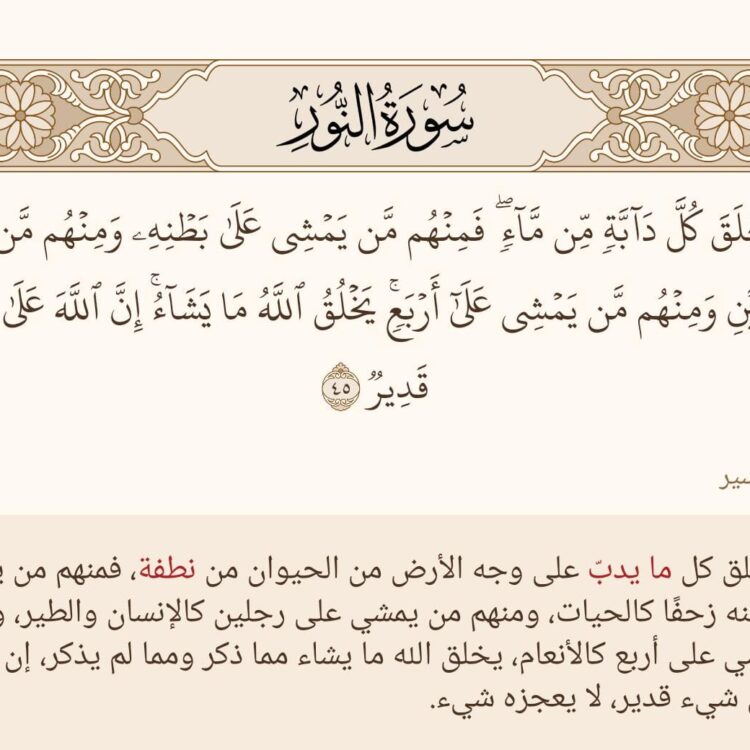 سُورَةُ النُّورِ
كُلَّ دَآبَّةٖ مِّن مَّآءٖۖ فَمِنۡهُم مَّن يَمۡشِي عَلَىٰ بَطۡنِهِۦ وَمِنۡهُم مَّن
وَمِنۡهُم مَّن يَمۡشِي عَلَىٰٓ أَرۡبَعٖۚ يَخۡلُقُ ٱللَّهُ مَا يَشَآءُۚ إِنَّ ٱللَّهَ عَلَىٰ
قَدِيرٞ ٤٥
كل ما يدبّ على وجه الأرض من الحيوان من نطفة، فمنهم من
زحفًا كالحيات، ومنهم من يمشي على رجلين كالإنسان والطير،
على أربع كالأنعام، يخلق الله ما يشاء مما ذكر ومما لم يذكر، إن
شيء قدير، لا يعجزه شيء.